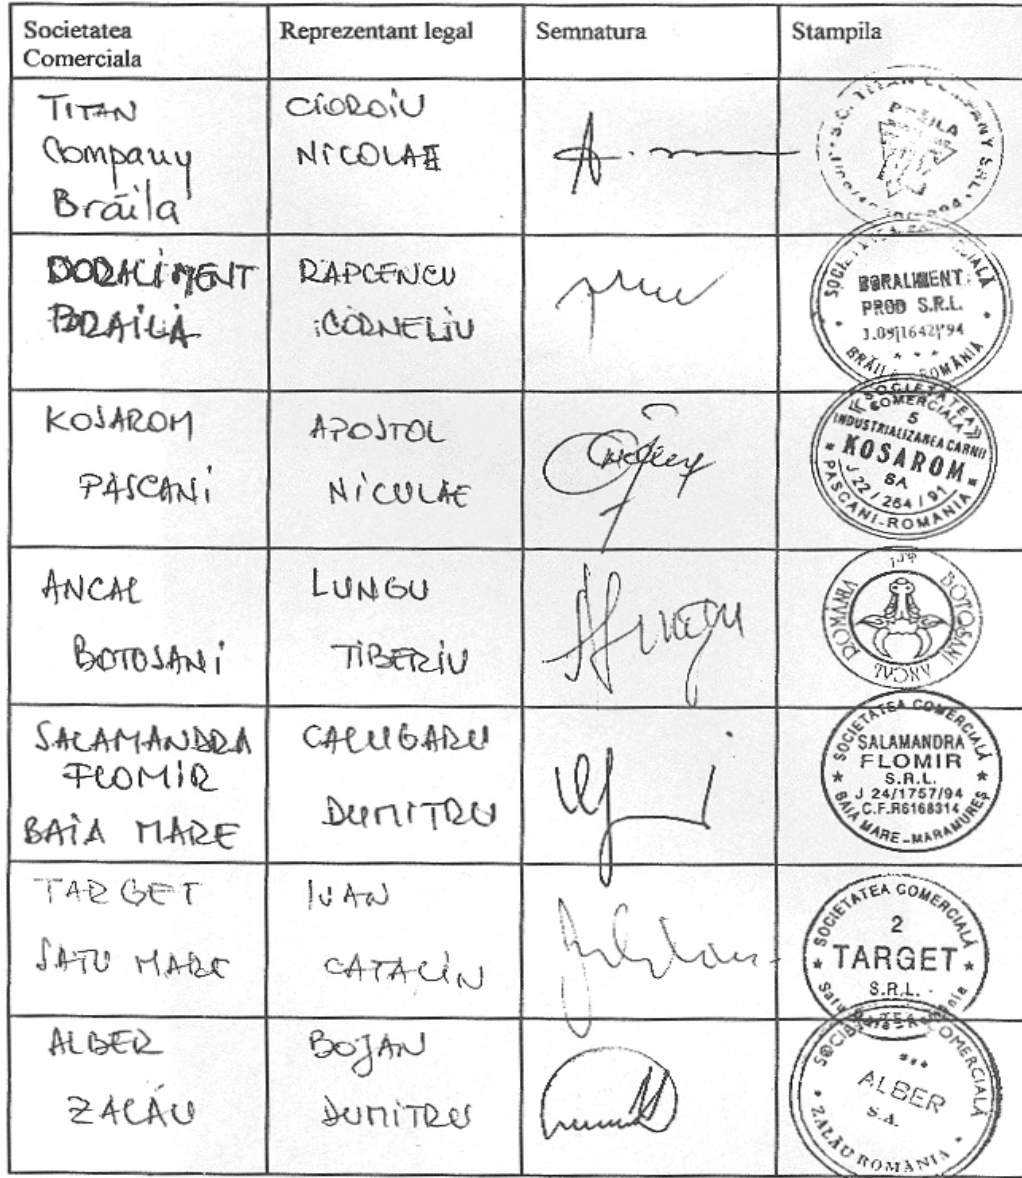 Societatea Comerciala
Reprezentant legal
Semnatura
Stampila
TITAN
Company
Brăila
CIOROIU
NICOLAE
S.C. TITAN COMPANY S.R.L.
BRAILA
DORALIMENT
BRAILA
RAPCENCU
CORNELIU
SOCIETATEA COMERCIALĂ
BORALIMENT
PROD S.R.L.
J.09|1642|'94
BRĂILA ROMÂNIA
KOSAROM
PASCANI
APOSTOL
NICULAE
SOCIETATEA
COMERCIALA
5
INDUSTRIALIZAREA CARNII
KOSAROM
SA
J 22 / 264 / 91
PASCANI-ROMANIA
ANCAL
BOTOSANI
LUNGU
TIBERIU
srl
BOTOSANI
ANCAL
ROMANIA
SALAMANDRA
FLOMIR
BAIA MARE
CALUGARU
DUMITRU
SOCIETATEA COMERCIALĂ
SALAMANDRA
FLOMIR
S.R.L.
J 24/1757/94
C.F.R6168314
BAIA MARE-MARAMUREŞ
TARGET
SATU MARE
IVAN
CATALIN
SOCIETATEA COMERCIALĂ
2
TARGET
S.R.L.
Satu Mare
ALBER
ZALĂU
BOJAN
DUMITRU
SOCIETATEA COMERCIALĂ
ALBER
S.A.
ZALĂU ROMANIA